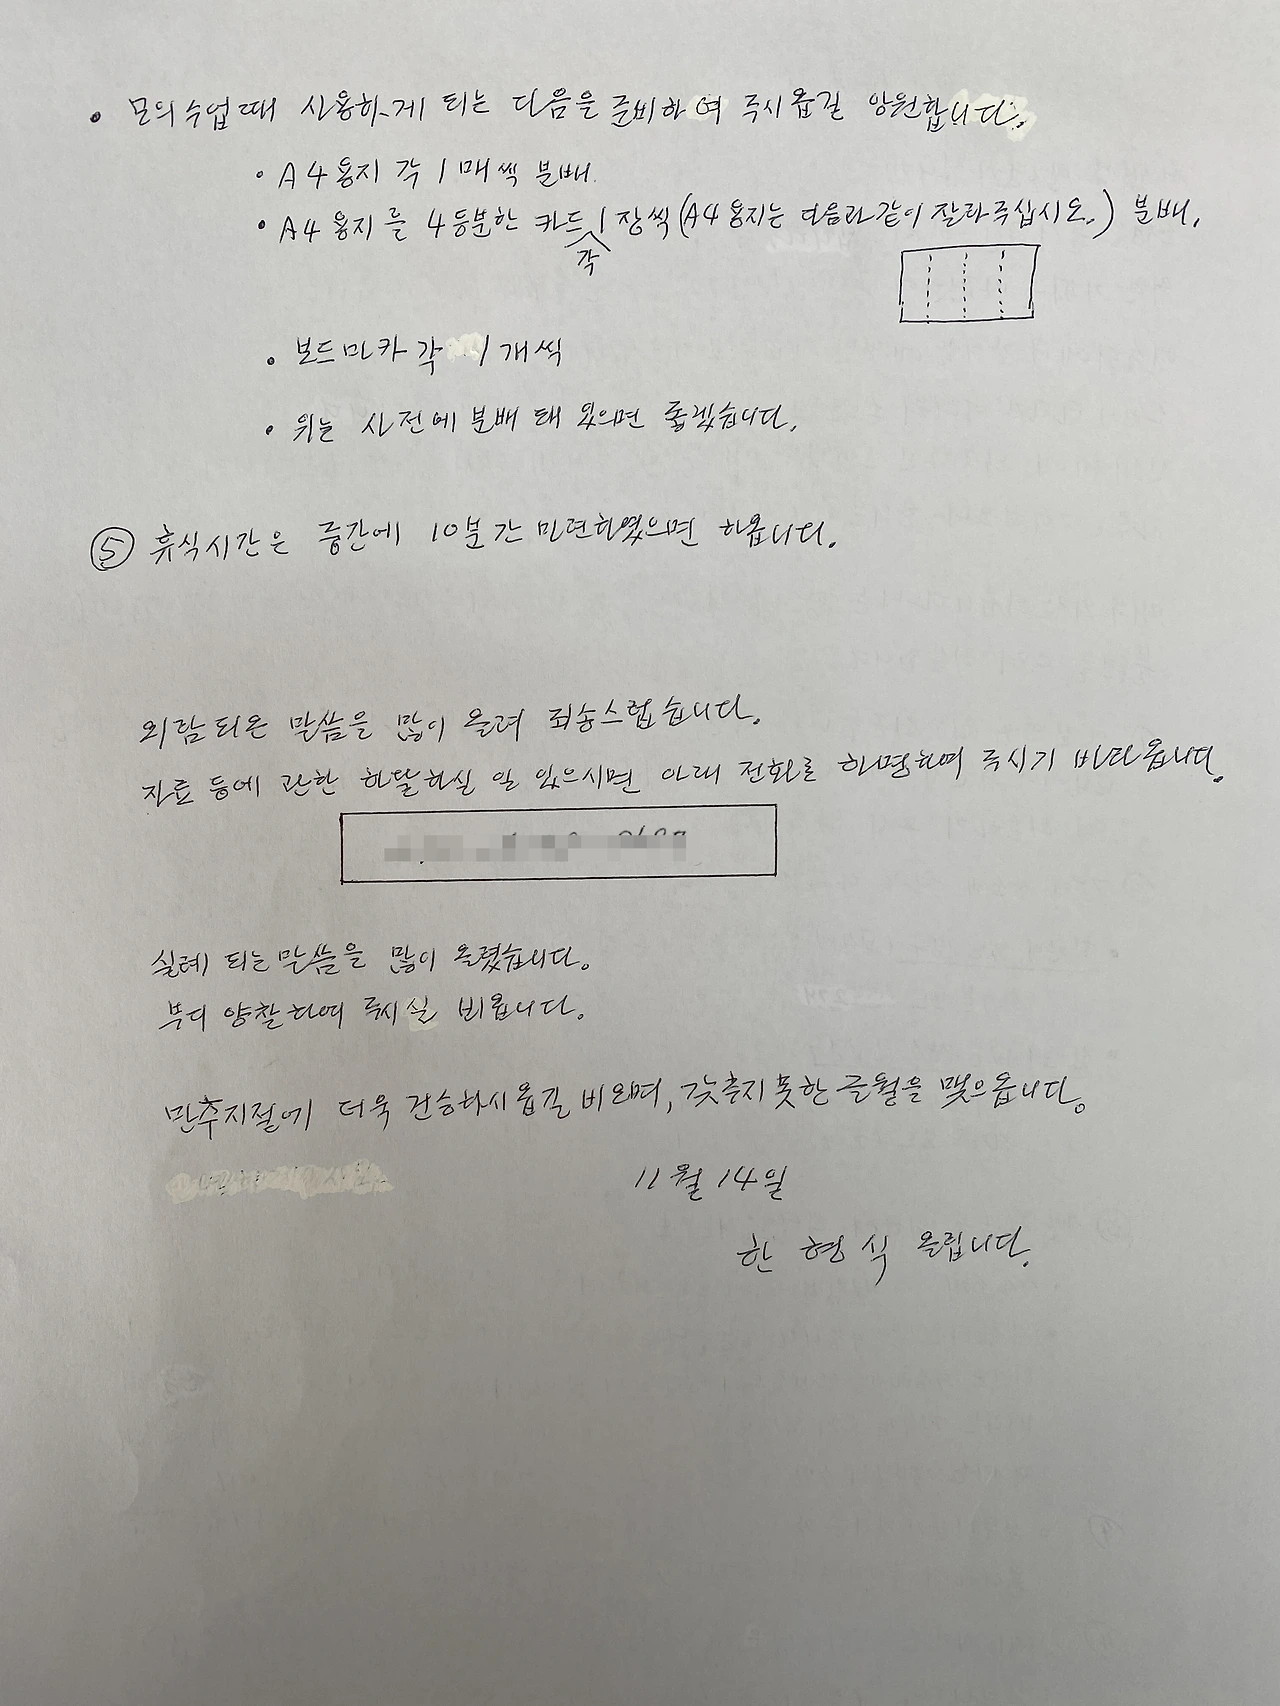 • 모의수업때 사용하게 되는 다음을 준비하여 주시옵길 앙원합니다.
• A4용지 각 1매씩 분배.
• A4용지를 4등분한 카드 각 1장씩(A4용지는 다음과같이 잘라주십시오.) 분배.
• 보드마카 각 1개씩
• 위는 사전에 분배 돼 있으면 좋겠습니다.
⑤ 휴식시간은 중간에 10분간 마련하였으면 하옵니다.
외람되온 말씀을 많이 올려 죄송스럽습니다.
자료 등에 관한 하달하실 일 있으시면 아래 전화로 하명하여 주시기 바라옵니다.
실례 되는 말씀을 많이 올렸습니다.
부디 양찰하여 주시실 비옵니다.
만추지절에 더욱 건승하시옵길 비오며, 갖추지 못한 글월을 맺으옵니다.
11월 14일
한 형 식 올립니다.